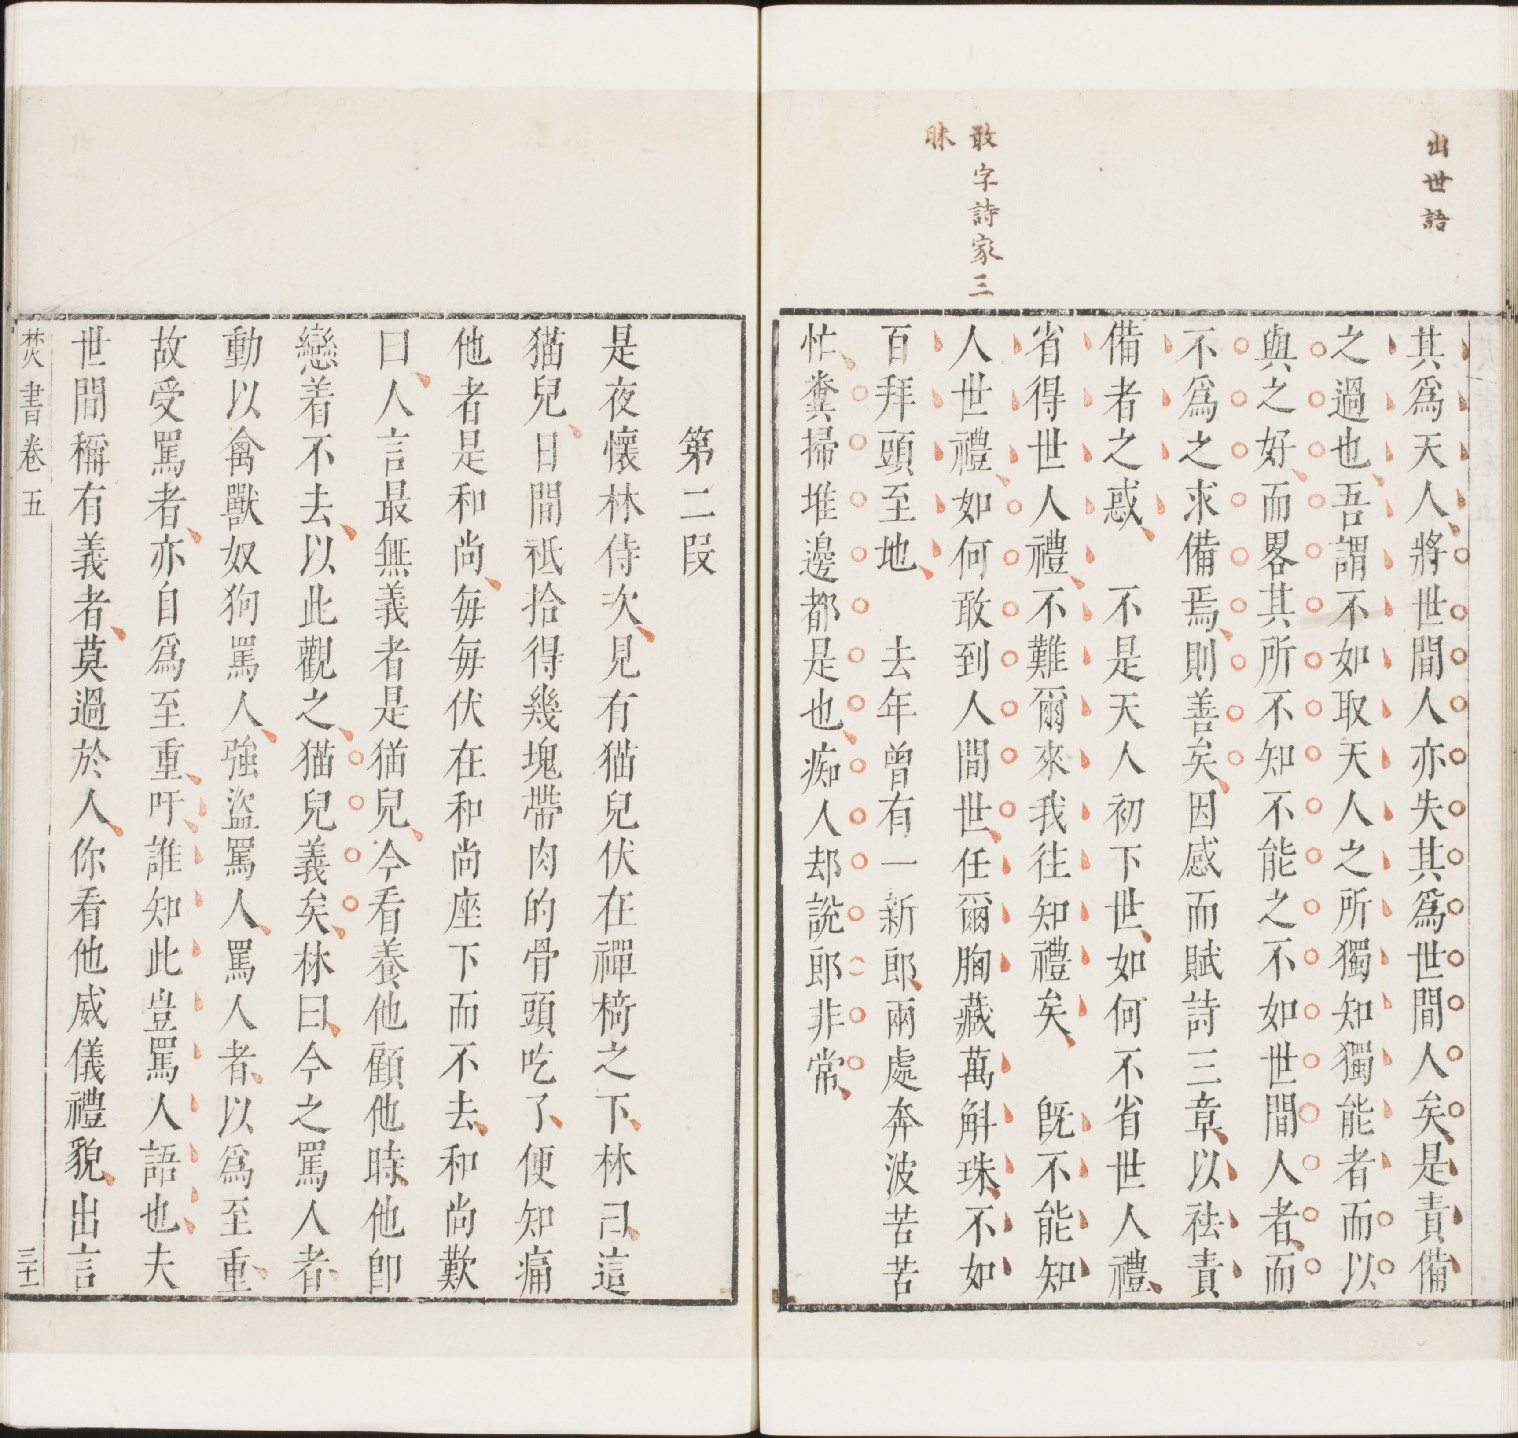 出世語
敢字詩家三
昧
其爲天人、將世間人亦失其爲世間人矣、是責備
之過也、吾謂不如取天人之所獨知獨能者而以
與之好、而畧其所不知不能之不如世間人者、而
不爲之求備焉、則善矣、因感而賦詩三章、以祛責
備者之惑、　不是天人初下世、如何不省世人禮、
省得世人禮、不難爾來我往知禮矣、　既不能知
人世禮、如何敢到人間世、任爾胸藏萬斛珠、不如
百拜頭至地、　去年曾有一新郎、兩處奔波苦苦
忙、糞掃堆邊都是也、痴人却說郎非常、
第二段
是夜懷林侍次、見有猫兒伏在禪椅之下、林曰、這
猫兒、日間祗拾得幾塊帶肉的骨頭吃了、便知痛
他者是和尚、每每伏在和尚座下而不去、和尚歎
曰、人言最無義者是猫兒、今看養他顧他時、他卽
戀着不去、以此觀之、猫兒義矣、林曰、今之罵人者、
動以禽獸奴狗罵人、強盜罵人、罵人者、以爲至重、
故受罵者、亦自爲至重、吁、誰知此豈罵人語也、夫
世間稱有義者、莫過於人、你看他威儀禮貌、出言
焚書卷五
三十一